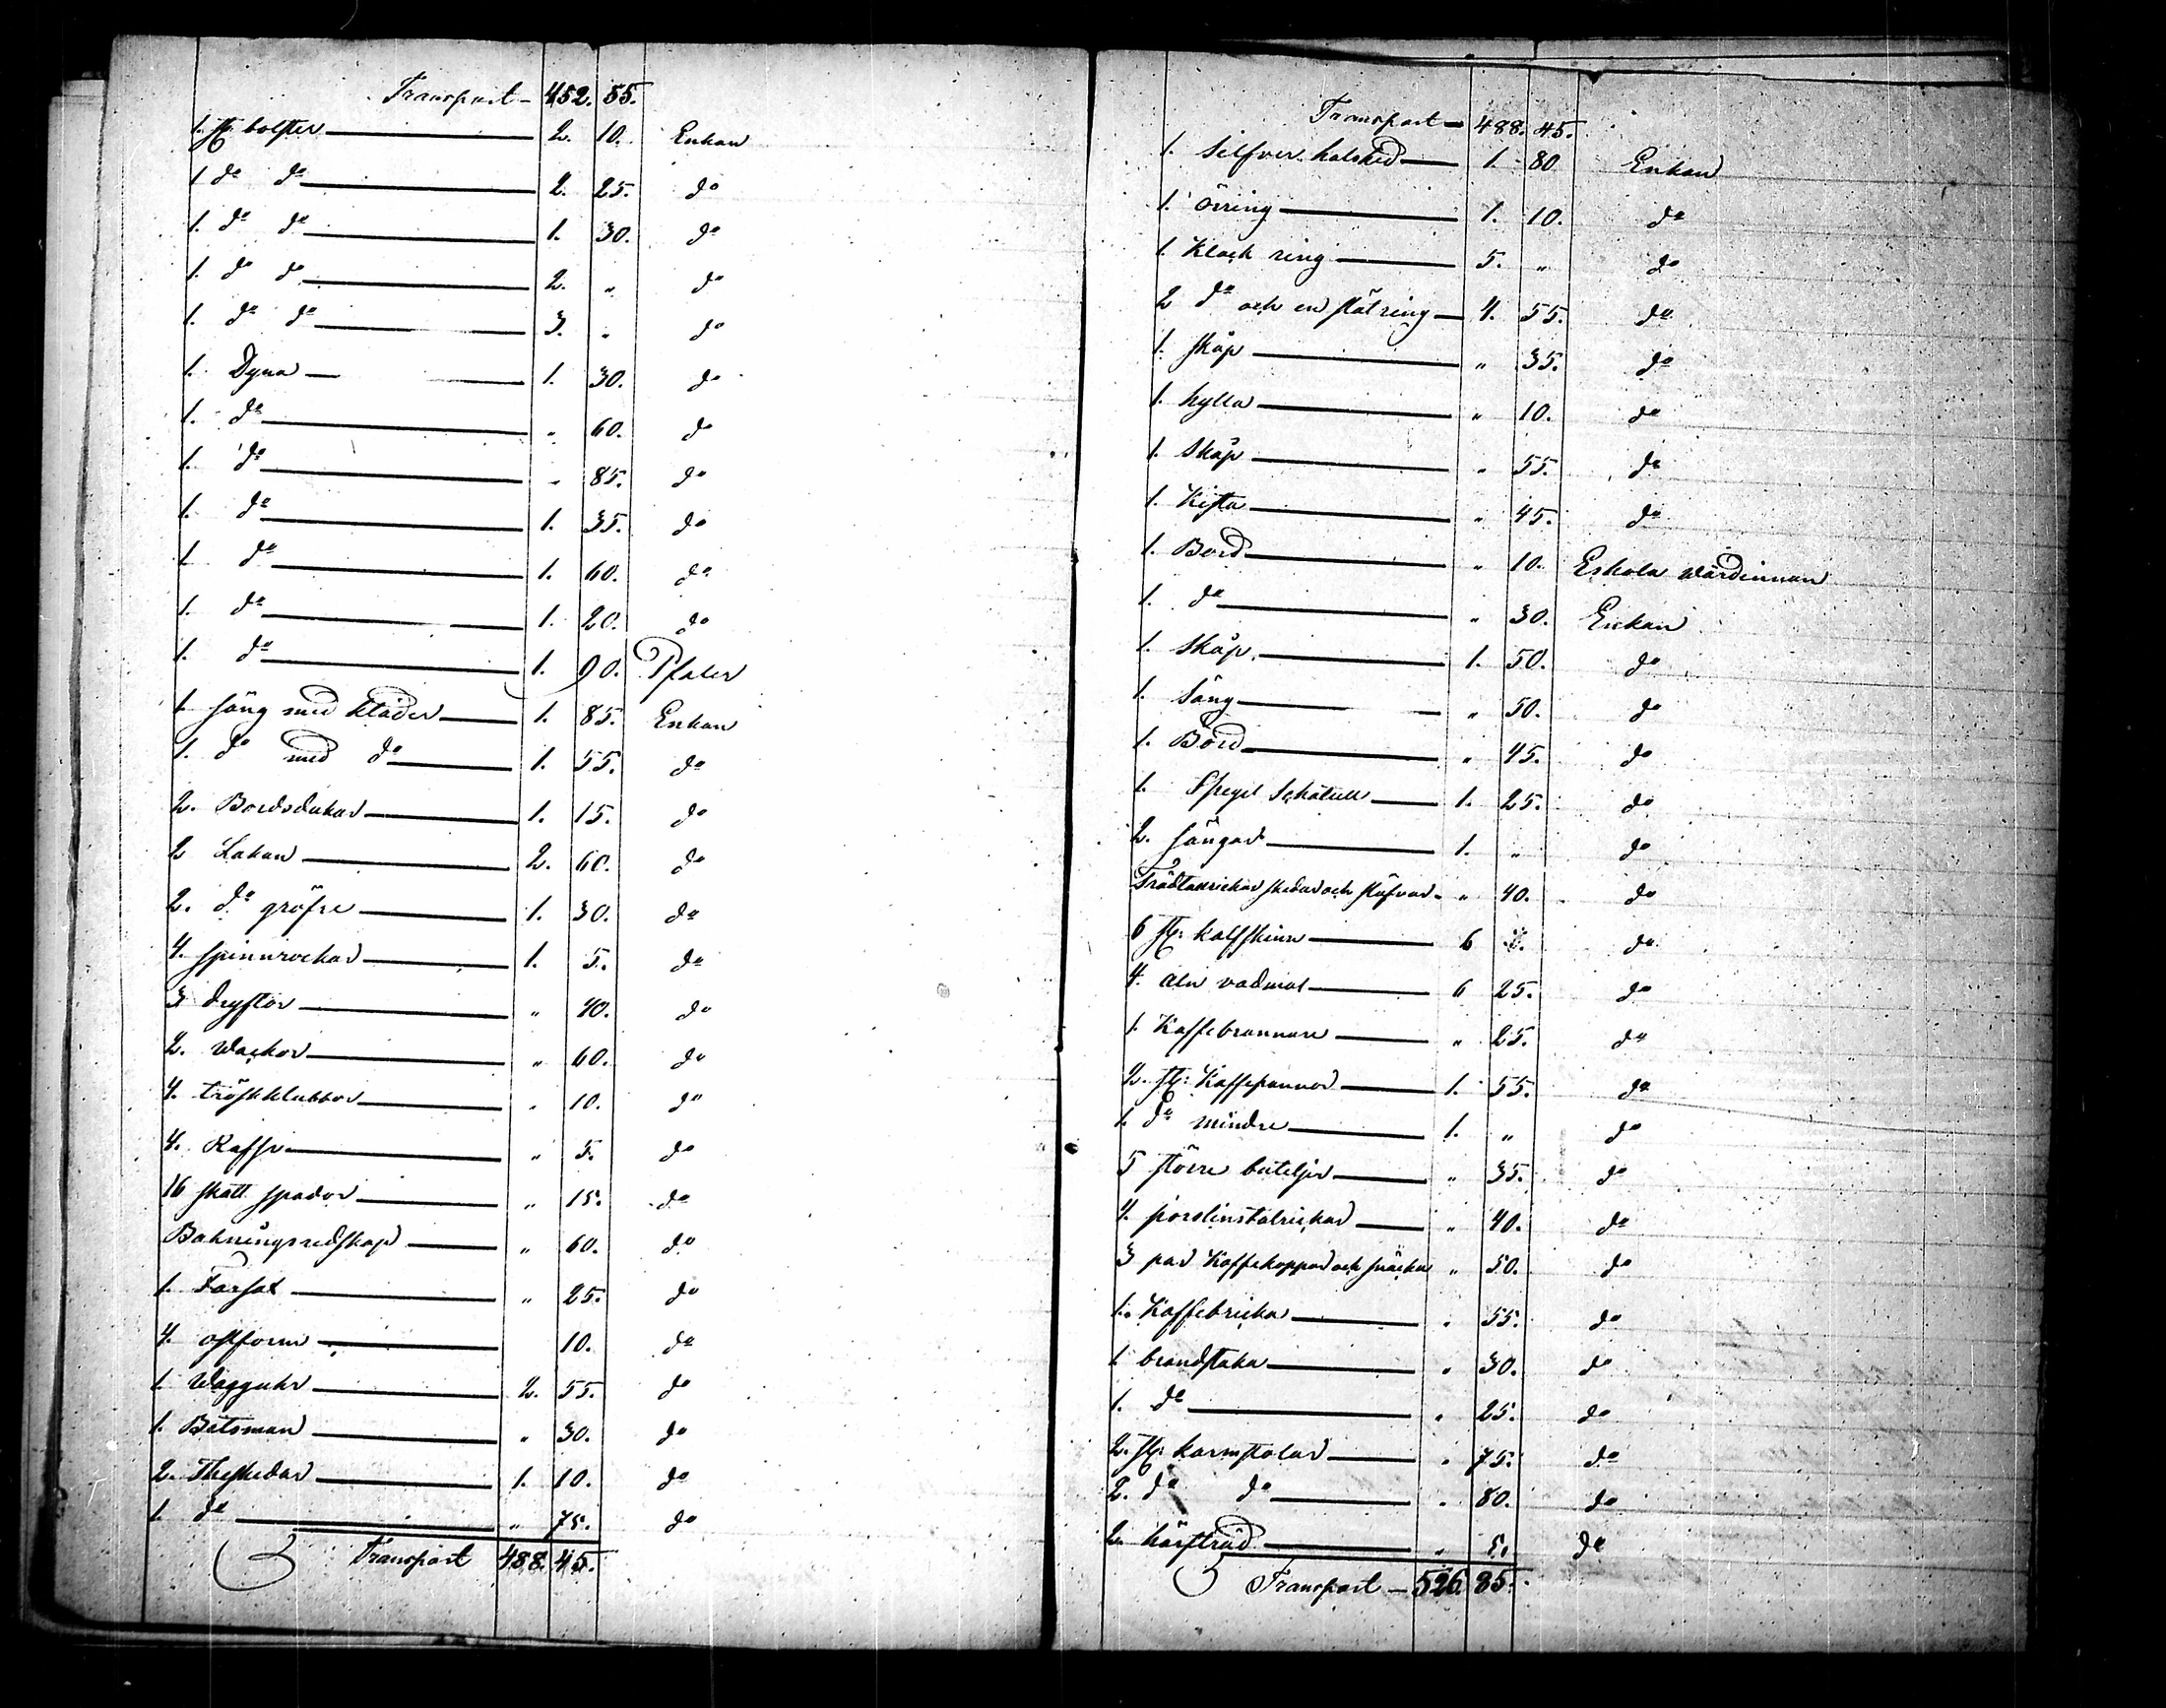 Transport – 452. 55.
1. st. bolster 2. 10. Enkan
1 do do 2. 25. do
1. do do 1. 30. do
1. do do 2. " do
1. do do 3. " do
1. Dyna 1. 30. do
1. do " 60. do
1. do " 85. do
1. do 1. 35. do
1 do 1. 60. do
1. do 1. 20. do
1. do 1. 90. Pfaler
1 säng med kläder 1. 85. Enkan
1. do med do 1. 55. do
2. Bordsdukar 1. 15. do
2 Lakan 2. 60. do
2. do gröfre 1. 30. do
4. spinnrockar 1. 5. do
3 dryftor " 40. do
2. Wackor " 60. do
4. tröskklubbor " 10. do
4. Raffr " 5. do
16 skått spador " 15. do
Bakningsredskap " 60. do
1. Farfat " 25. do
4. ostform 10. do
1 Wägguhr 2. 55. do
1. Betsman " 30. do
2. Theskedar 1. 10. do
1 do " 75. do
Transport 488. 45.
Transport – 488. 45.
1. Silfver halsked 1. 80 Enkan
1. örring 1. 10. do
1. Klack ring 5. " do
2 do och en slät ring 4. 55. do
1. skåp " 35. do
1. hylla " 10. do
1. Skåp " 55. do
1. Kista " 45. do
1. Bord " 10. Eskola wärdinnan
1. do " 30. Enkan
1. Skåp. 1. 50. do
1. Säng " 50. do
1. Bord " 45. do
1. Spegel Schatull 1. 25. do
2. sängar 1. " do
Trädtallrickar skedar och stäfvar " 40. do
6 st: kalfskinn 6 do
4. aln vadmal 6 25. do
1. Kaffebrännare " 25. do
2. st: Kaffepannor 1. 55. do
1. do mindre 1. " do
5 större buteljer " 35. do
4. porslinstalrickar " 40. do
3 par Kaffekoppar och snäcka " 50. do
1. Kaffebricka " 55. do
1 brandstaka " 30. do
1. do " 25. do
2. st: karmstolar " 75. do
2. do do " 80. do
2. härfträd " 5. do
Transport – 526. 85.